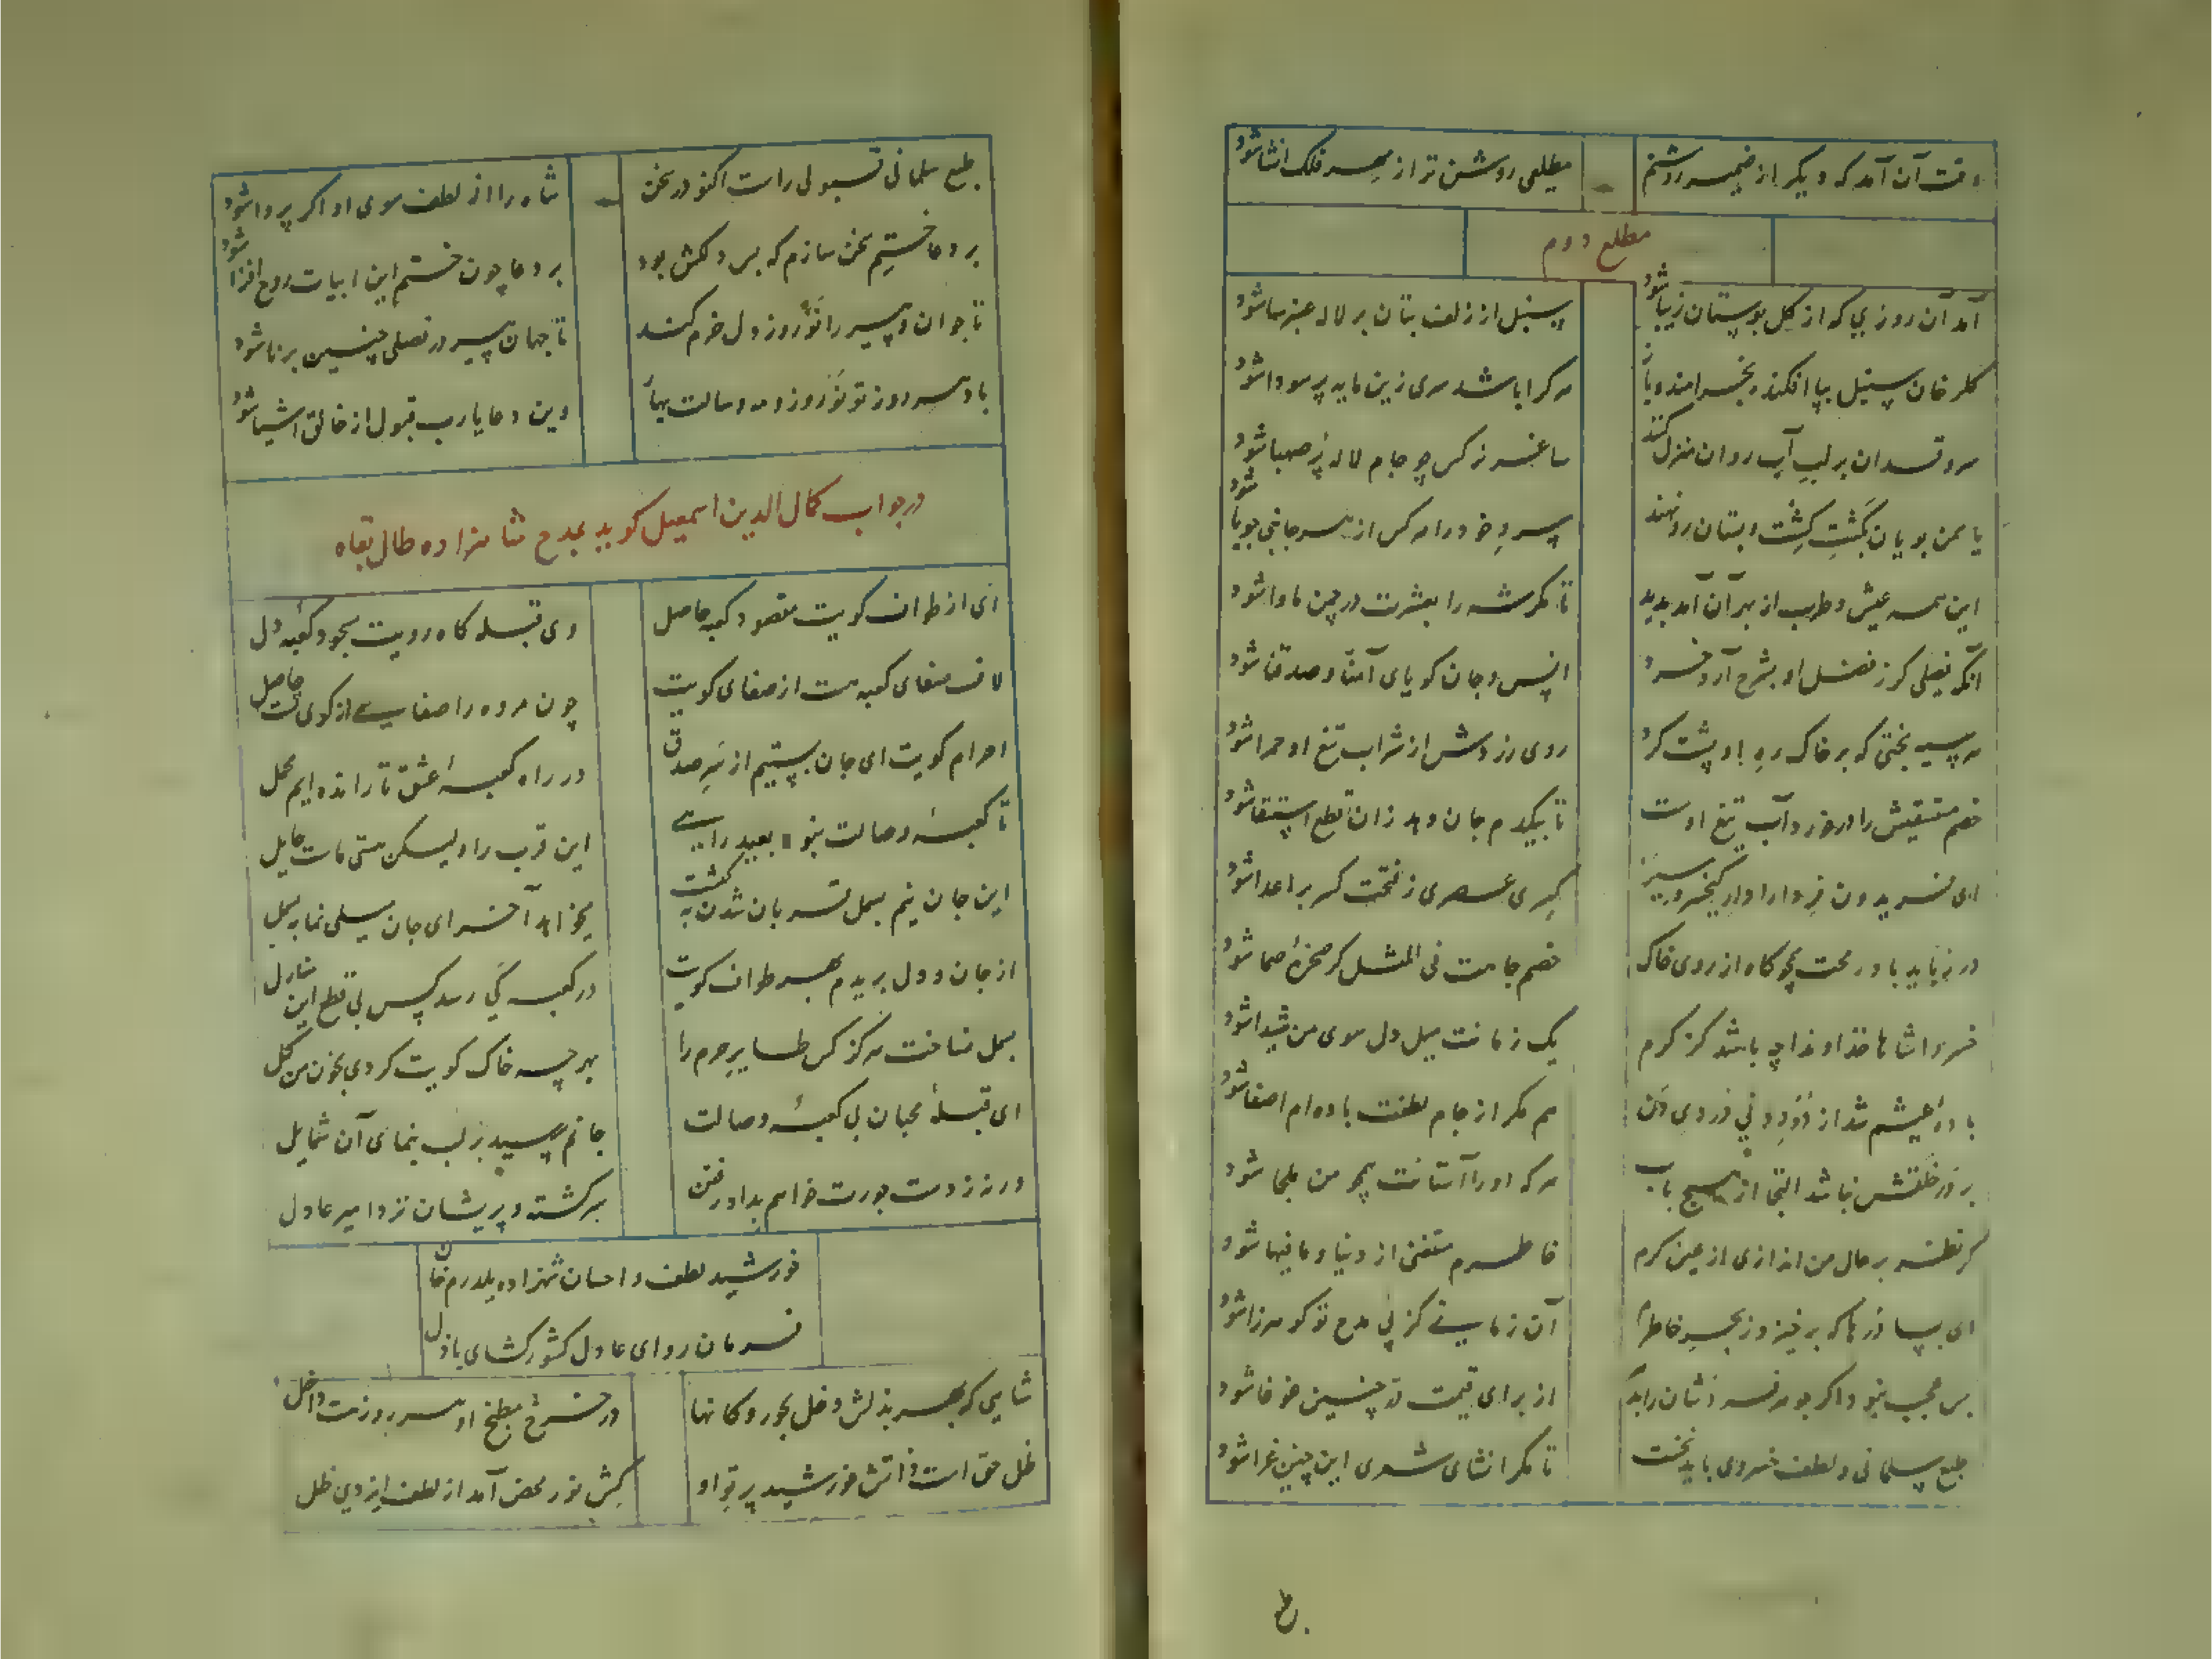 وقت آن آمد که دیگر از ضمیر روشنم
مطلعی روشن تر از مهر فلک انشا شود
مطلع دوم
آمد آن روزی که از گل بوستان زیبا شود
سنبل از زلف بتان بر لاله عنبرسا شود
گلرخان سنبل بپا افکنده بخرامند و
هر کرا باشد سری زین مایه پر سودا شود
سروقدان بر لب آب روان منزل کنند
ساغر نرگس چو جام لاله پر صهبا شود
یاسمن بویان بگشت کشت و بستان رو نهند
سرو خود را هر کس از هر جانبی جویا شود
این همه عیش و طرب از بهر آن آمد پدید
تا مگر شه را بعشرت در چمن ماوا شود
آنکه فصلی کز فضل او بشرح آرد خرد
انس و جان گویای آمنا و صدقنا شود
هر سیه بختی که بر خاک ره او پشت کرد
روی زردش از شراب تیغ او حمرا شود
خصم مستسقیش را در خورد آب تیغ اوست
تا بیکدم جان دهد زان قطع استسقا شود
ای فریدون فر دارا
کسری عصری ز تختت کسر بر اعدا شود
در رباید باد رمحت همچو کاه از روی خاک
خصم جاهت فی المثل گر صخرهٔ صما شود
خسروا شاها خداوندا چه باشد کز کرم
یک زمانت میل دل سوی من شیدا شود
بادهٔ عیشم شد از دور
هم مگر از جام لطفت باده ام اصفا شود
بر در خلقش نباشد التجا از هیچ باب
هر که او را آستانت همچو من ملجا شود
گر نظر بر حال من اندازی از عین کرم
خاطرم مستغنی از دنیا و ما فیها شود
ای بسا درها که برخیزد ز بحر خاطرم
آن زمانی کز پی مدح تو گوهرزا شود
بس عجب نبود اگر جوهرفروشان را بدان
از برای قیمت در چنین غوغا شود
طبع سلمانی و لطف خسروی باید نخست
تا مگر انشای شعری این چنین غرا شود
طبع
طبع سلمانی قبولی راست اکنون در سخن
شاه را از لطف سوی او اگر پروا شود
بر دعا ختم سخن سازم که بس دلکش بود
بر دعا چون ختم این ابیات روح افزا شود
تا جوان و پیر را نوروز دل خرم کند
تا جهان پیر در فصلی چنین برنا شود
باد هر روز تو نوروز و مه و سالت بهار
وین دعا یا رب قبول از خالق اشیا شود
در جواب کمال الدین اسمعیل گوید بمدح شاهزاده طال بقاه
ای از طواف کویت مقصود کعبه حاصل
وی قبله گاه رویت مسجود کعبه دل
لاف صفای کعبه هست از صفای کویت
چون مروه را صفایی از کوی تست حاصل
احرام کویت ای جان بستیم از سر صدق
در راه کعبهٔ عشق تا رانده ایم محمل
تا کعبهٔ وصالت نبود بعید راهی
این قرب را ولیکن هستی ماست حایل
این جان نیم بسمل قربان شدن به کیشت
میخواهد آخر ای جان میلی نما به بسمل
از جان و دل بریدم بهر طواف کویت
در کعبه کی رسد کس بی قطع این منازل
بسمل نساخت هرگز کس طایر حرم را
بهر چه خاک کویت کردی بخون من گل
ای قبلهٔ محبان بی کعبهٔ وصالت
جانم رسید بر لب بنمای آن شمایل
ورنه ز دست جورت خواهم بداد رفتن
سرگشته و پریشان نزد امیر عادل
خورشید لطف و احسان شهزاده یلدرم خان
فرمان روای عادل کشور گشای باذل
شاهی که بهر بذلش دخل بحور و کانها
در خرج مطبخ او هر روز هست داخل
ظل حق است و ذاتش خورشید پرتو او
کش نور محض آمد از لطف ایزدی ظل